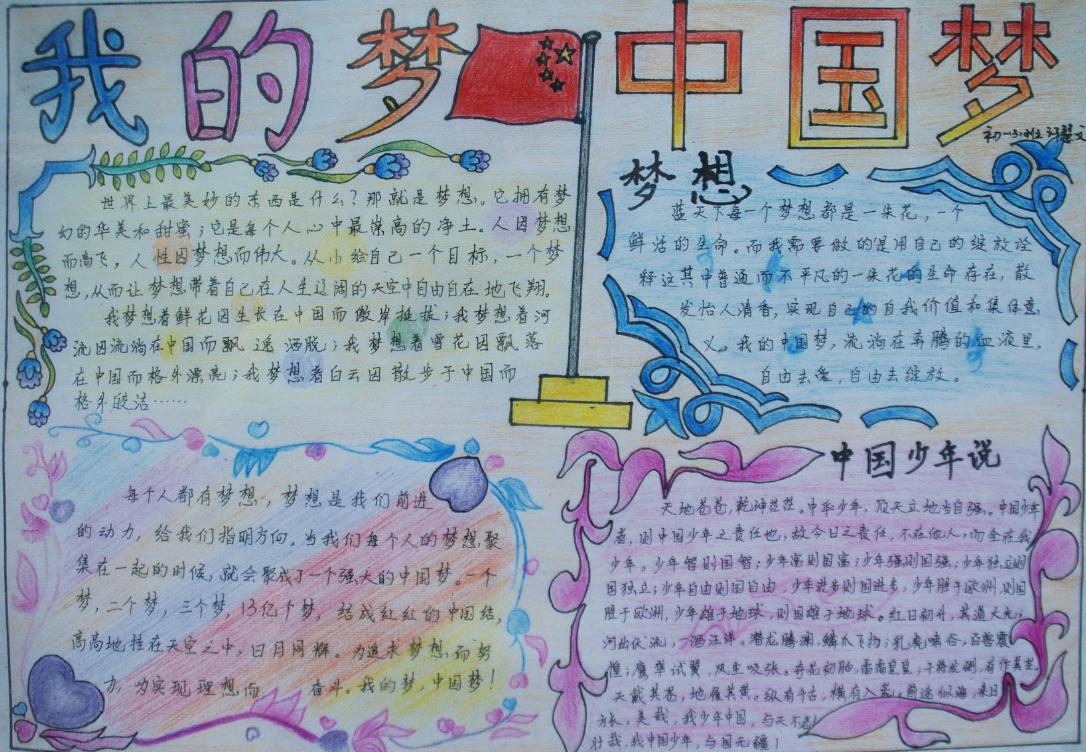 我的梦 中国梦
世界上最美妙的东西是什么？那就是梦想。它拥有梦
幻的华美和甜蜜；它是每个人心中最崇高的净土。人因梦想
而高飞，人性因梦想而伟大。从小给自己一个目标，一个梦
想，从而让梦想带着自己在人生辽阔的天空中自由自在地飞翔。
我梦想着鲜花因生长在中国而傲岸挺拔；我梦想着河
流因流淌在中国而飘逸洒脱；我梦想着雪花因飘落
在中国而格外漂亮；我梦想着白云因散步于中国而
格外皎洁……
梦想
蓝天下每一个梦想都是一朵花，一个
鲜活的生命。而我需要做的是用自己的绽放诠
释这其中普通而不平凡的一朵花的生命存在，散
发怡人清香，实现自己的自我价值和集体意
义。我的中国梦，流淌在奔腾的血液里，
自由去爱，自由去绽放。
每个人都有梦想，梦想是我们前进
的动力，给我们指明方向。当我们每个人的梦想聚
集在一起的时候，就会聚成了一个强大的中国梦。一个
梦，二个梦，三个梦，13亿个梦，结成红红的中国结，
高高地挂在天空之中，日月同辉。为追求梦想而努
力，为实现理想而奋斗。我的梦，中国梦！
中国少年说
天地苍苍，乾坤茫茫。中华少年，顶天立地当自强。中国少年
者，则中国少年之责任也，故今日之责任，不在他人，而全在我
少年。少年智则国智；少年富则国富；少年强则国强；少年独立则
国独立；少年自由则国自由，少年进步则国进步，少年胜于欧洲，则国
胜于欧洲，少年雄于地球，则国雄于地球。红日初升，其道大光；
河出伏流，一泻汪洋。潜龙腾渊，鳞爪飞扬；乳虎啸谷，百兽震
惶；鹰隼试翼，风尘吸张。奇花初胎，矞矞皇皇，干将发硎，有作其芒。
天戴其苍，地履其黄。纵有千古，横有八荒，前途似海，来日
方长，美哉，我少年中国，与天不老！
壮哉，我中国少年，与国无疆！